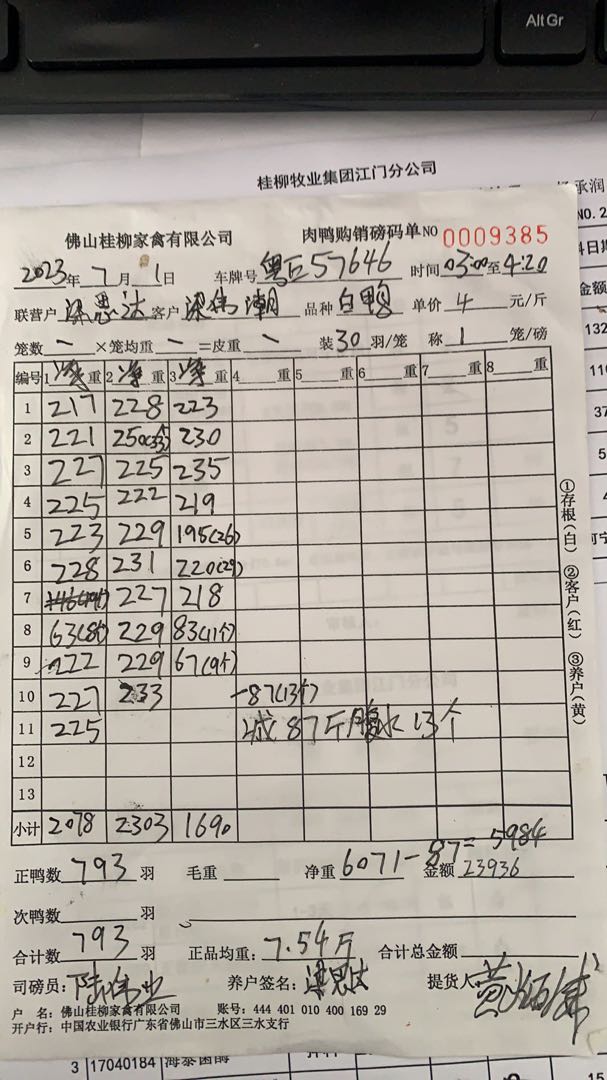 Alt Gr
桂柳牧业集团江门分公司
杨承润
NO.2
佛山桂柳家禽有限公司 肉鸭购销磅码单NO 0009385
2023年7月1日 车牌号 粤E57646 时间 03:00至4:20
联营户 梁思达 客户 梁伟潮 品种 白鸭 单价 4 元/斤
笼数 一 ×笼均重 一 =皮重 一 装30羽/笼 称 1 笼/磅
编号 1净重 2净重 3净重 4 重 5 重 6 重 7 重 8 重
1 217 228 223
2 221 250(33) 230
3 227 225 235
4 225 222 219
5 223 229 195(26)
6 228 231 220(29)
7 227 218
8 63(8个) 229 83(11个)
9 222 229 67(9个)
10 227 233 -87(13个)
11 225 减87斤腹水13个
12
13
小计 2078 2303 1690
正鸭数 793 羽 毛重 净重 6071-87=5984 金额 23936
次鸭数 羽
合计数 793 羽 正品均重: 7.54斤 合计总金额
司磅员: 陆伟业 养户签名: 梁思达 提货人
户 名: 佛山桂柳家禽有限公司 账号: 444 401 010 400 169 29
开户行: 中国农业银行广东省佛山市三水区三水支行
①存根(白) ②客户(红) ③养户(黄)
日期
金额
132
110
37
3 17040184 海泰菌酶